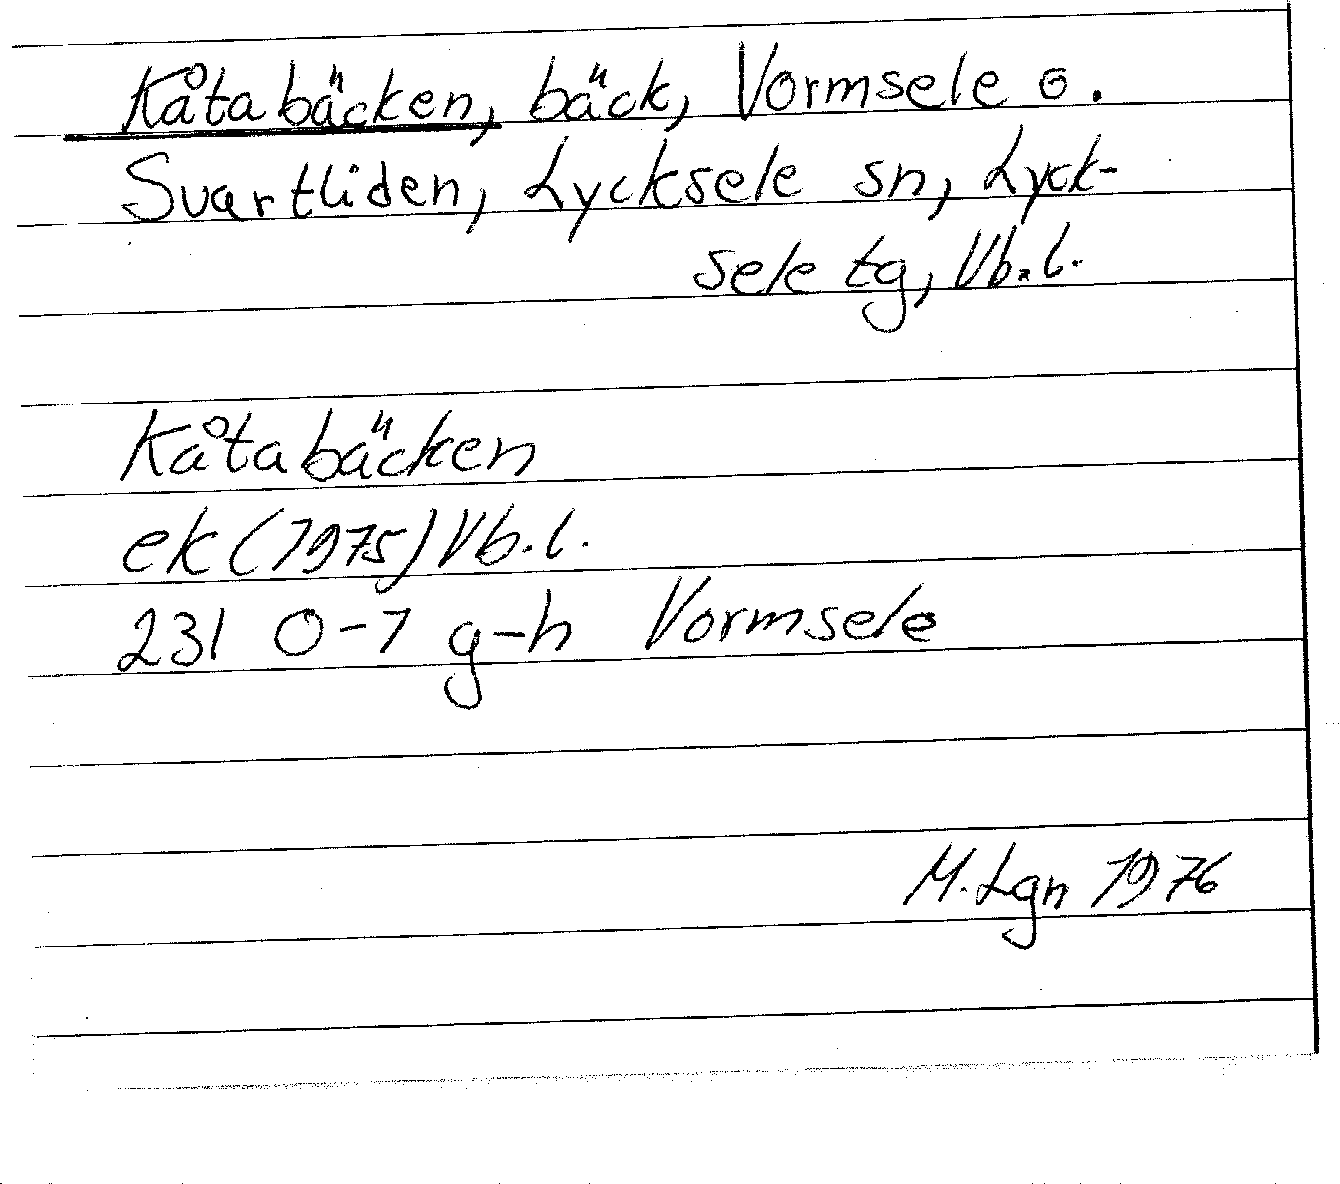 Kåtabäcken, bäck, Vormsele o.
Svartliden, Lycksele sn, Lyck-
sele tg, Vb.l.
Kåtabäcken
ek (1975) Vb.l.
23I 0-1 g-h Vormsele
M. Lgn 1976